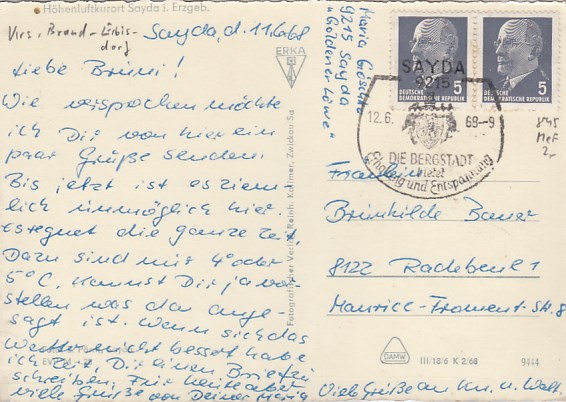 Höhenluftkurort Sayda i. Erzgeb.
Sayda, d. 11.6.68
Liebe Bruni!
Wie versprochen möchte
ich Dir von hier ein
paar Grüße senden.
Bis jetzt ist es ziem
lich unmöglich hier.
Es regnet die ganze Zeit,
Dazu sind nur 4° oder
5°C. Kannst Dir ja vor-
stellen was da ange-
sagt ist. Wenn sich das
Wetter nicht bessert habe
ich Zeit, Dir einen Brief zu
schreiben. Für heute aber
viele Grüße von Deiner Maria
Viele Grüße an Kn. u. Walt.
ERKA
Fotografischer Verlag Reinh. Kallmer, Zwickau Sa.
Maria
9215 Sayda
"Goldener Löwe"
DEUTSCHE
DEMOKRATISCHE REPUBLIK
5
DEUTSCHE
DEMOKRATISCHE REPUBLIK
5
SAYDA
9215
12.6. 68--9
DIE BERGSTADT
bietet
Erholung und Entspannung
Fräulein
Brunhilde Bauer
8122 Radebeul 1
Maurice-Froment-Str. 8
DAMW
III/18/6 K 2/68 9444